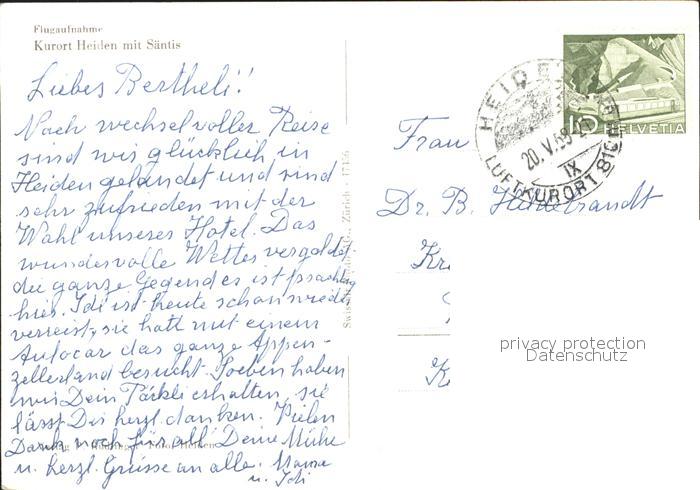 Flugaufnahme
Kurort Heiden mit Säntis
Liebes Bertheli!
Nach wechselvoller Reise
sind wir glücklich in
Heiden gelandet und sind
sehr zufrieden mit der
Wahl unseres Hotel. Das
wundervolle Wetter vergoldet
die ganze Gegend es ist prachtig
hier. Idi ist heute schon wieder
verreist, sie hatt mit einem
Autocar das ganze Appen-
zellerland besucht. Soeben haben
wir Dein Päckli erhalten, sie
lässt Dir herzl. danken. Vielen
Dank noch für all Deine Mühe
u. herzl. Grüsse an alle. Mama
u. Idi
Zürich - 17456
HEIDEN
20.V.58
IX
LUFTKURORT 810
15 HELVETIA
Frau
Dr. B. Heidebrandt
Kr
K
privacy protection
Datenschutz